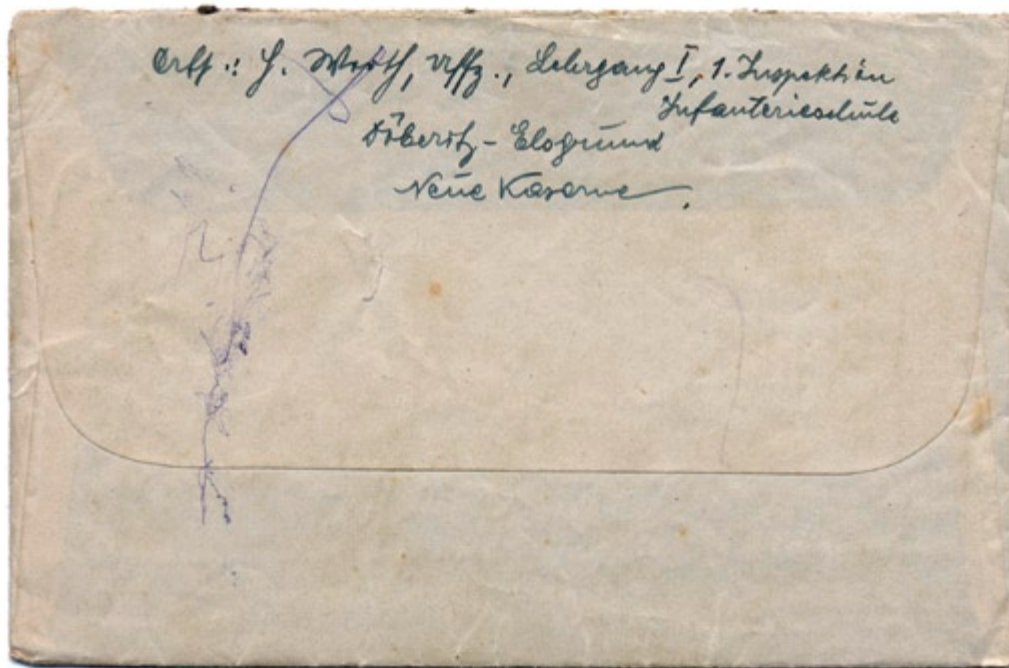 Abs.: H. Werth, Uffz., Lehrgang I, 1. Inspektion
Infanterieschule
Döberitz-Elsgrund
Neue Kaserne.